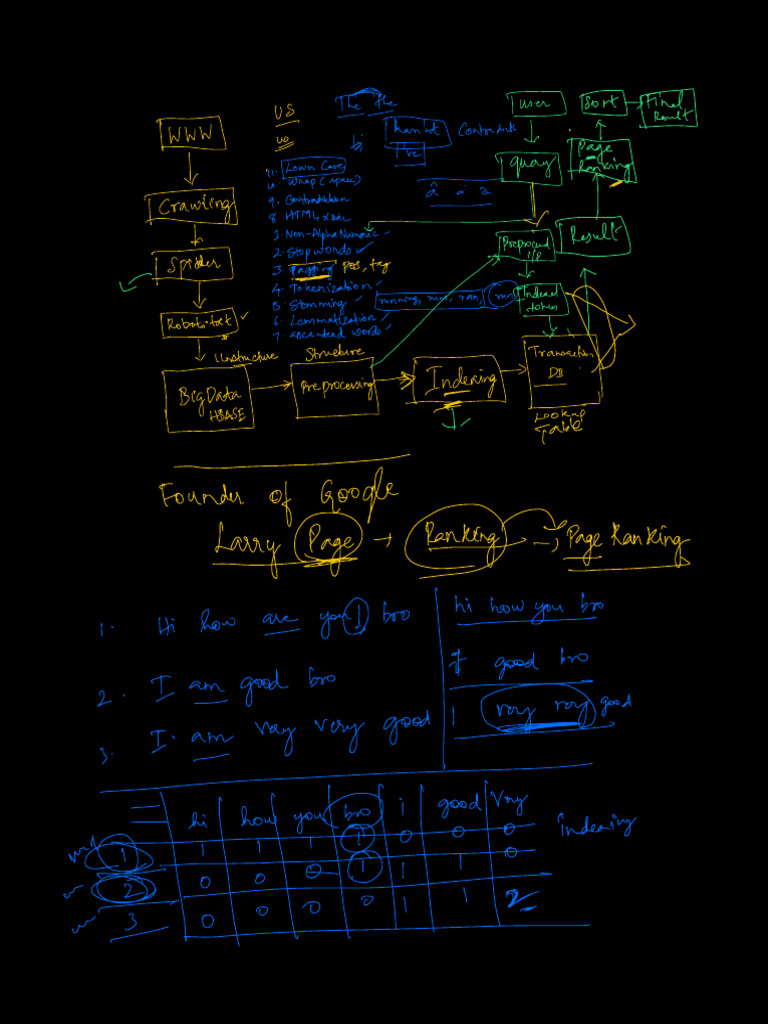 WWW
Crawling
Spider
Robots.txt
Unstructure
BigData
HBASE
US
The the
Lower Case
Wrap (space)
9. Contradiction
8. HTML
1. Non-AlphaNumeric
2. Stopwords
3. Tagging pos, tag
4. Tokenization
5. Stemming
6. Lammatization
7. words
running, run, ran, run
Structure
Preprocessing
Indexing
user
query
Preprocess
I/P
Indexed
token
Transaction
DB
Lookup
Table
Result
Page
Ranking
Sort
Final
Result
Founder of Google
Larry Page → Ranking → Page Ranking
1. Hi how are you I bro
2. I am good bro
3. I am very very good
hi how you bro
I good bro
I very very good
hi how you bro i good very
1 1 1 1 1 0 0 0
2 0 0 0 1 1 1 0
3 0 0 0 0 1 1 2
indexing